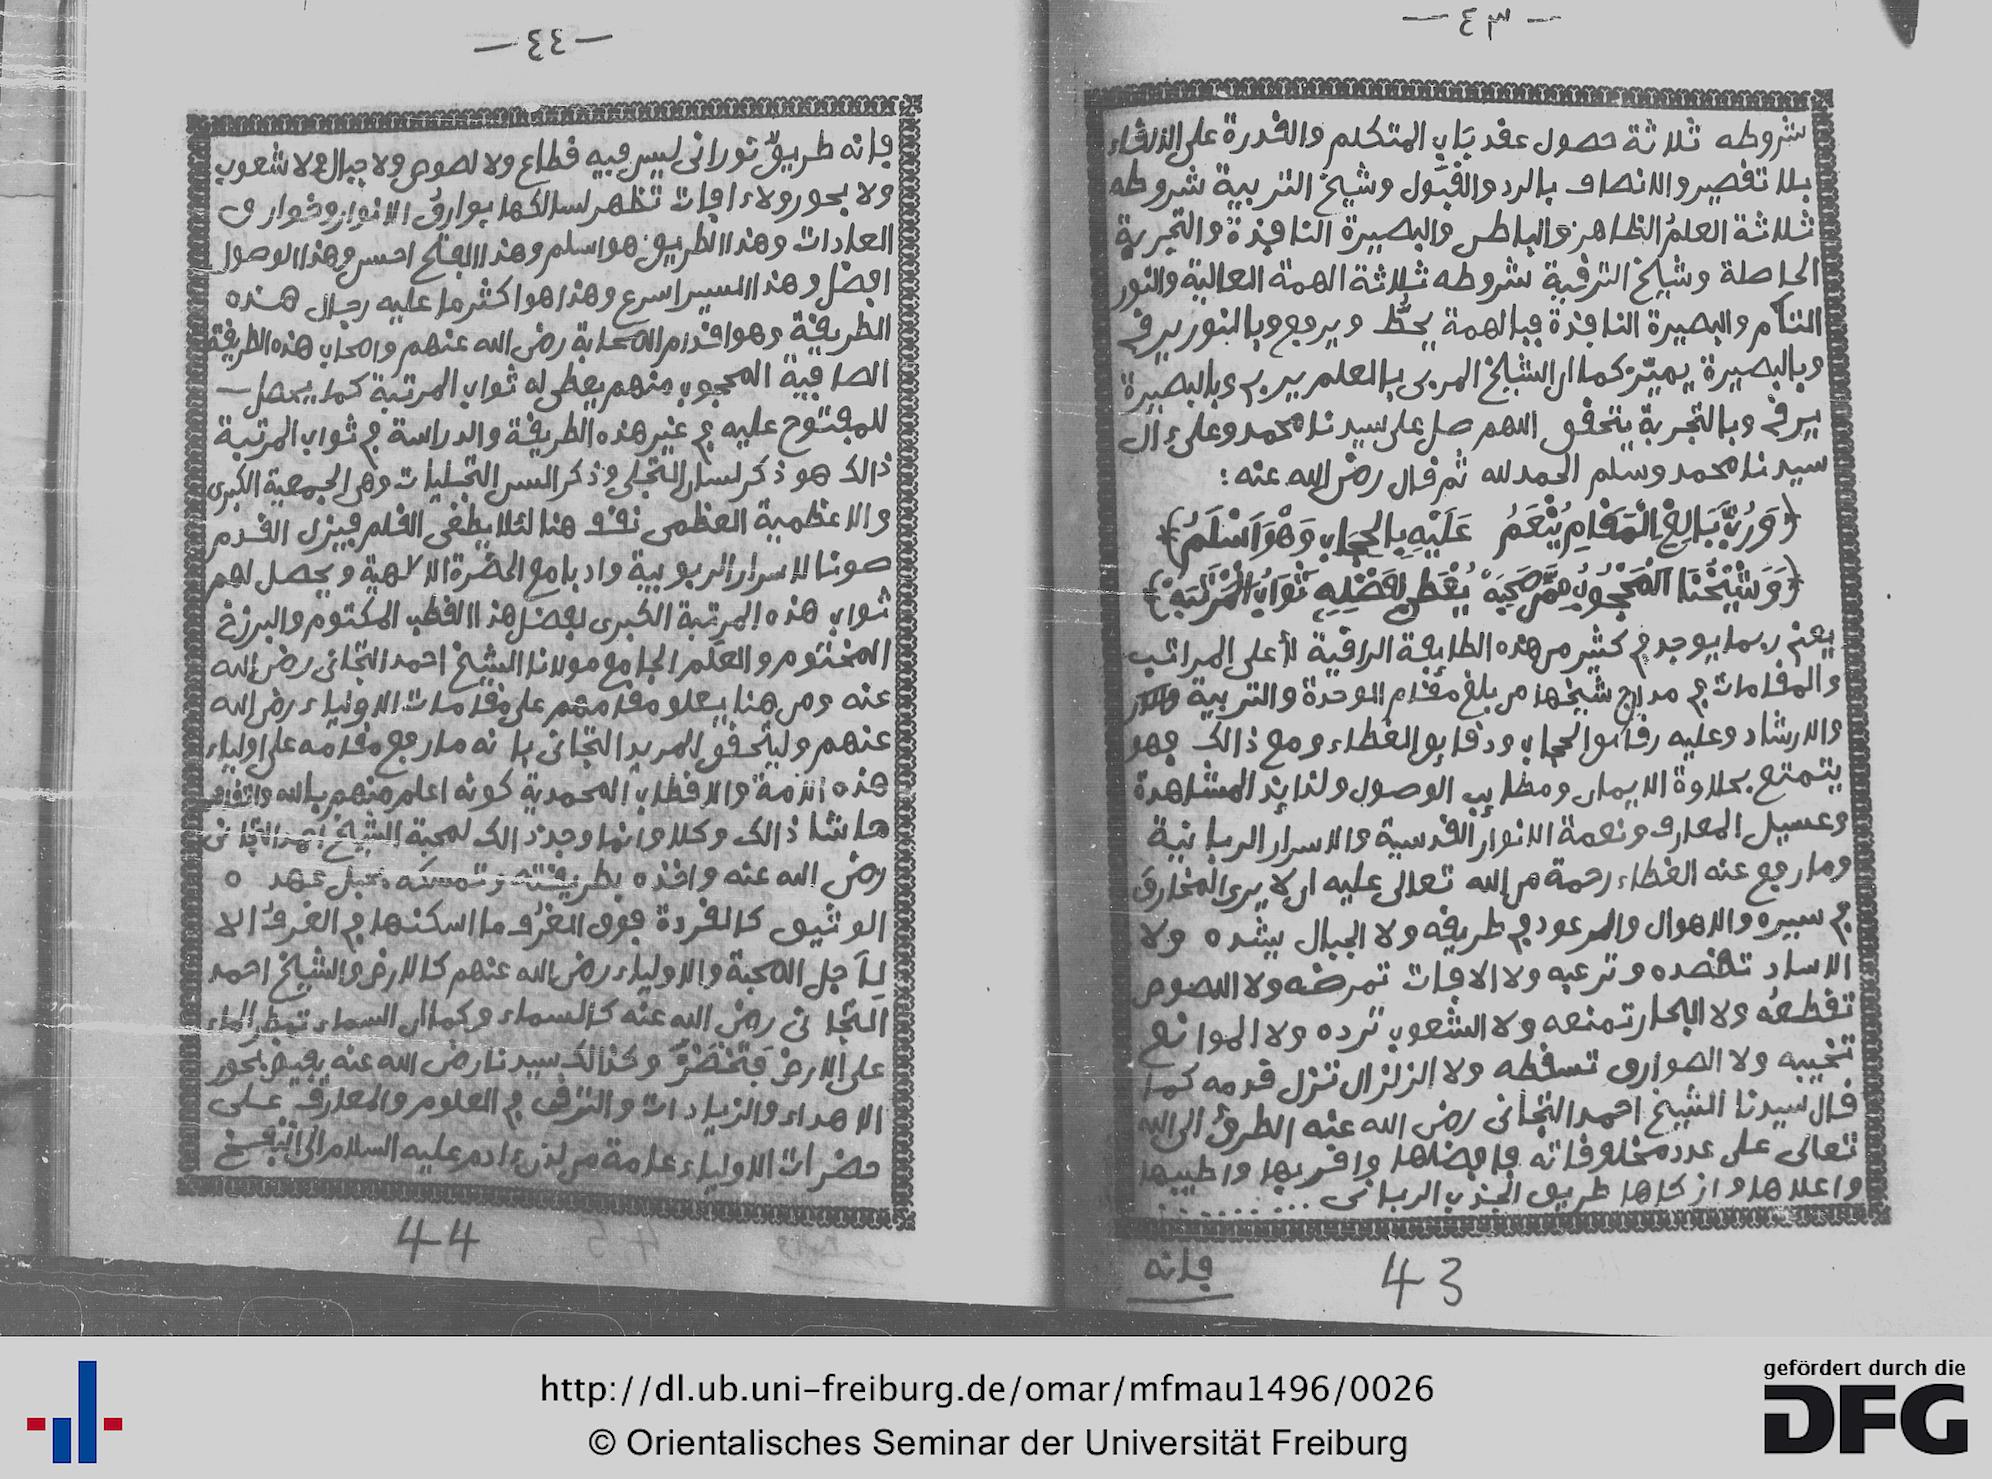 — ٤٣ —
شروطه ثلاثة حصول عقد باب المتكلم والقدرة على الالقاء
بلا تقصير والانصاف بالرد والقبول وشيخ التربية شروطه
ثلاثة العلم الظاهر والباطن والبصيرة النافذة والتجربة
الحاصلة وشيخ الترقية شروطه ثلاثة الهمة العالية والنور
التام والبصيرة النافذة فبالهمة يحط ويرجع وبالنور يرقى
وبالبصيرة يميز كما ان الشيخ المربى بالعلم يربى وبالبصيرة
يرقى وبالتجربة يتحقق اللهم صل على سيدنا محمد وعلى ءال
سيدنا محمد وسلم الحمد لله ثم قال رضى الله عنه :
﴿وَرُبَّ بَالِغِ الْمَقَامِ يُنْعَمُ عَلَيْهِ بِالحِجَابِ وَهْوَ اَسْلَمُ﴾
﴿وَشَيْخُنَا الْمَحْجُوبُ مِمَّنْ صَحِبَهْ يُعْطَى بِفَضْلِهِ ثَوَابُ الْمَرْتَبَهْ﴾
يعنى ربما يوجد فى كثير من هذه الطايفة الراقية لأعلى المراتب
والمقامات فى مدارج شيخها من بلغ مقام الوحدة والتربية
والارشاد وعليه رقائق الحجاب ودقايق الغطاء ومع ذالك فهو
يتمتع بحلاوة الايمان ومطايب الوصول ولذايذ المشاهدة
وعسيل المعارف ونعمة الانوار القدسية والاسرار الربانية
وما رفع عنه الغطاء رحمة من الله تعالى عليه ان لا يرى المخارق
فى سيره والاهوال والرعود فى طريقه ولا الجبال بيشده ولا
الاساد تقصده وترعبه ولا الافات تمرضه ولا اللصوص
تقطعه ولا البحار تمنعه ولا الشعوب ترده ولا الموانع
تخيبه ولا الصوارق تسقطه ولا الزلزال تزل قدمه كما
قال سيدنا الشيخ احمد التجانى رضى الله عنه الطرق الى الله
تعالى على عدد مخلوقاته فافضلها واقربها واطيبها
واعلاها وازكاها طريق الجذب الربانى . . . . . . . . .
فانه
43
— ٤٤ —
فانه طريق نورانى ليس فيه قطاع ولا لصوص ولا جبال ولا شعوب
ولا بحور ولا ءافات تظهر لسالكها بوارق الانوار وخوارق
العادات وهذا الطريق هو اسلم وهذا الفتح احسن وهذا الوصول
افضل وهذا السير اسرع وهذا هو اكثر ما عليه رجال هذه
الطريقة وهو اقدام الصحابة رضى الله عنهم واصحاب هذه الطريقة
الصافية المحجوب منهم يعطى له ثواب المرتبة كما يحصل
للمفتوح عليه فى غير هذه الطريقة والدراسة فى ثواب المرتبة
ذالك هو ذكر لسان التجلى وذكر السر التجليات وهى الجمعية الكبرى
والاعظمية العظمى نقف هنا لئلا يطغى القلم فيزل القدم
صونا لاسرار الربوبية وادبا مع الحضرة الالهية ويحصل لهم
ثواب هذه المرتبة الكبرى بفضل هذا القطب المكتوم والبرزخ
المختوم والعلم الجامع مولانا الشيخ احمد التجانى رضى الله
عنه ومن هنا يعلو مقامهم على مقامات الاولياء رضى الله
عنهم وليتحقق المريد التجانى بانه ما رفع مقامه على اولياء
هذه الامة والاقطاب المحمدية كونه اعلم منهم بالله
حاشا ذالك وكلا وانما وجد ذالك لمحبة الشيخ احمد التجانى
رضى الله عنه واخذه بطريقته وتمسكه بحبل عهده
الوثيق كالقردة فوق الغرف ما اسكنها فى الغرف الا
لاجل المحبة والاولياء رضى الله عنهم كالارض والشيخ احمد
التجانى رضى الله عنه كالسماء وكما ان السماء تمطر الماء
على الارض فتخضر وكذالك سيدنا رضى الله عنه يفيض بحور
الامداد والزيادات والترقى فى العلوم والمعارف على
حضرات الاولياء عامة من لدن ءادم عليه السلام الى النفخ
44
http://dl.ub.uni-freiburg.de/omar/mfmau1496/0026
© Orientalisches Seminar der Universität Freiburg
gefördert durch die
DFG